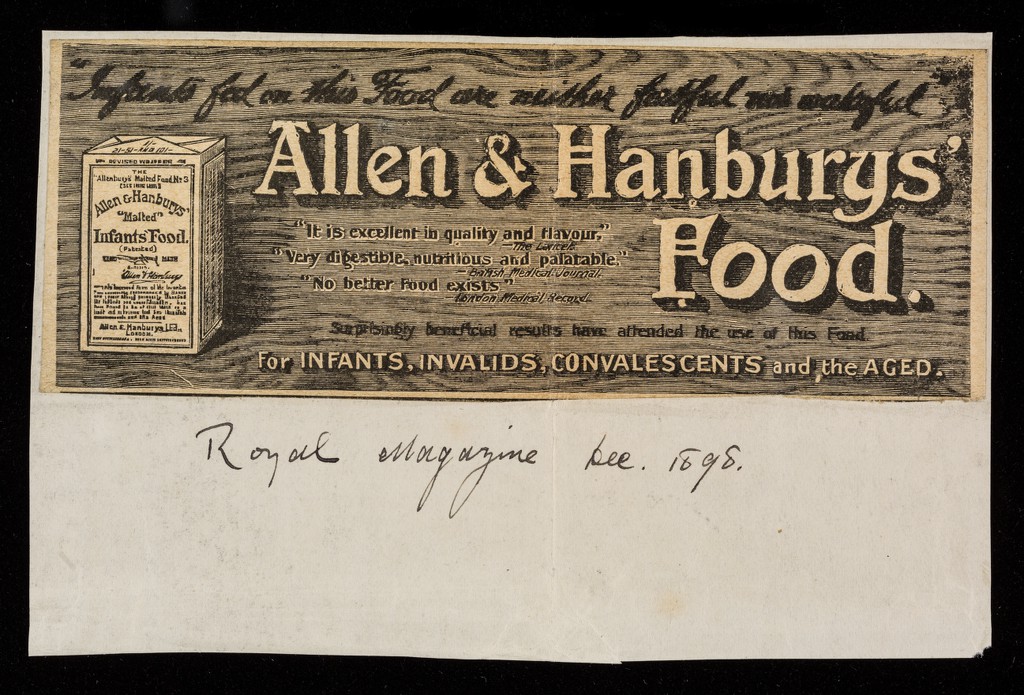 "Infants fed on this Food are neither fretful nor wakeful"
Allen & Hanburys'
Food.
"It is excellent in quality and flavour,"
—The Lancet.
"Very digestible, nutritious and palatable."
—British Medical Journal.
"No better Food exists"
London Medical Record.
Surprisingly beneficial results have attended the use of this Food.
For INFANTS, INVALIDS, CONVALESCENTS and the AGED.
THE
"Allenburys" Malted Food No 3
Allen & Hanburys'
"Malted"
Infants Food.
(Patented)
Allen & Hanburys Ltd.
LONDON.
Royal Magazine Dec. 1898.